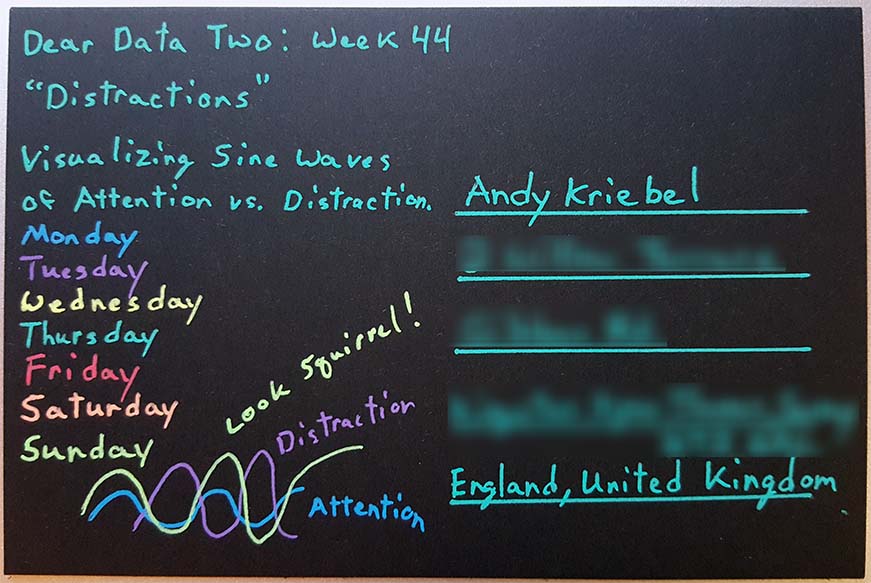 Dear Data Two: Week 44
"Distractions"
Visualizing Sine Waves
of Attention vs. Distraction.
Monday
Tuesday
Wednesday
Thursday
Friday
Saturday
Sunday
Look Squirrel!
Distraction
Attention
Andy Kriebel
England, United Kingdom